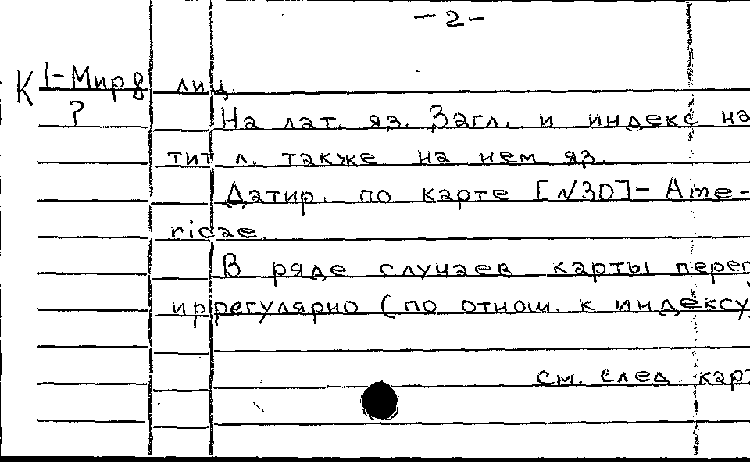 - 2 -
К 1-Мир8 лиц.
?
На лат. яз. Загл. и индекс на
тит л. также на нем яз.
Датир. по карте [N30]- Ame-
ricae.
В ряде случаев карты переп
иррегулярно (по отнош. к индексу
см. след. карт